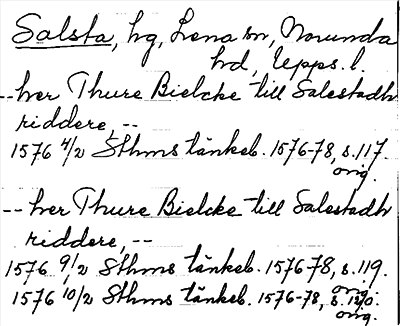 Salsta, hg, Lena sn, Norunda
hd, Upps. l.
-- her Thure Bielcke till Salestadh
riddere, --
1576 4/2 Sthms tänkeb. 1576-78, s. 117.
orig.
-- her Thure Bielcke till Salestadh
riddere, --
1576 9/2 Sthms tänkeb. 1576-78, s. 119.
orig.
1576 10/2 Sthms tänkeb. 1576-78, s. 120.
orig.